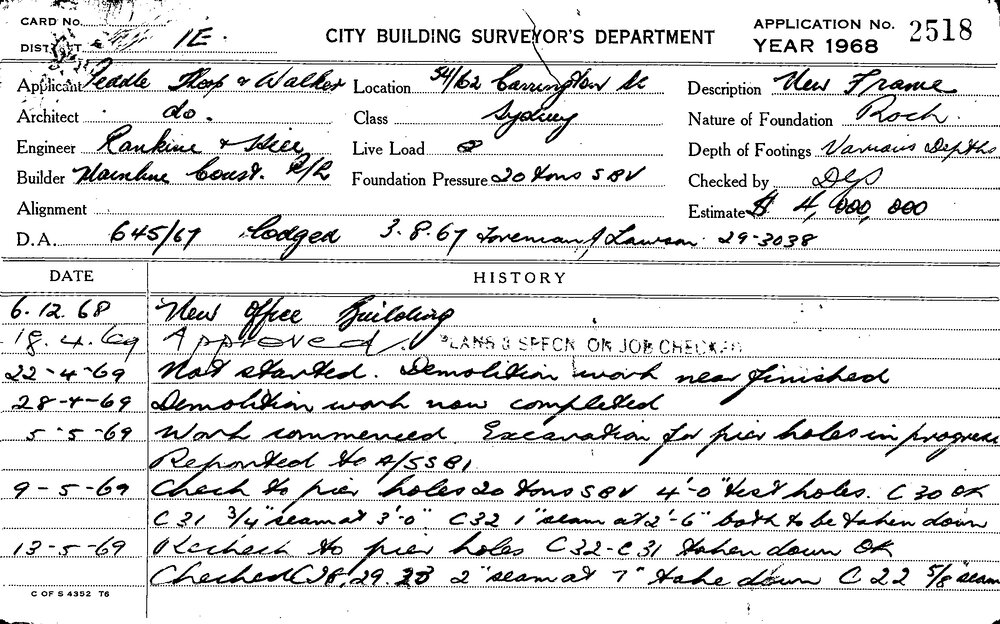 CARD No.
DISTRICT 1E.
CITY BUILDING SURVEYOR'S DEPARTMENT
APPLICATION No. 2518
YEAR 1968
Applicant Peddle Thorp & Walker Location 54/62 Carrington St Description New Frame
Architect do. Class Sydney Nature of Foundation Rock.
Engineer Rankine & Hill Live Load Depth of Footings Various Depths
Builder Mainline Const. P/L Foundation Pressure 20 tons SBV Checked by
Alignment Estimate $ 4,000,000
D.A. 645/67 lodged 3.8.67 Foreman J Lawson 29-3038
DATE HISTORY
6.12.68 New Office Building
18.4.69 Approved. PLANS & SPECN ON JOB CHECKED
22-4-69 Not started. Demolition work near finished
28-4-69 Demolition work now completed
5-5-69 Work commenced. Excavation for pier holes in progress
Reported to A/SSBI
9-5-69 Check to pier holes 20 tons SBV 4'-0" test holes. C30 OK
C31 3/4" seam at 3'-0" C32 1" seam at 2'-6" both to be taken down
13-5-69 Recheck to pier holes C32-C31 taken down OK
Checked C28, 29. 2" seam at 7" take down C22 5/8" seam
C OF S 4352 T6